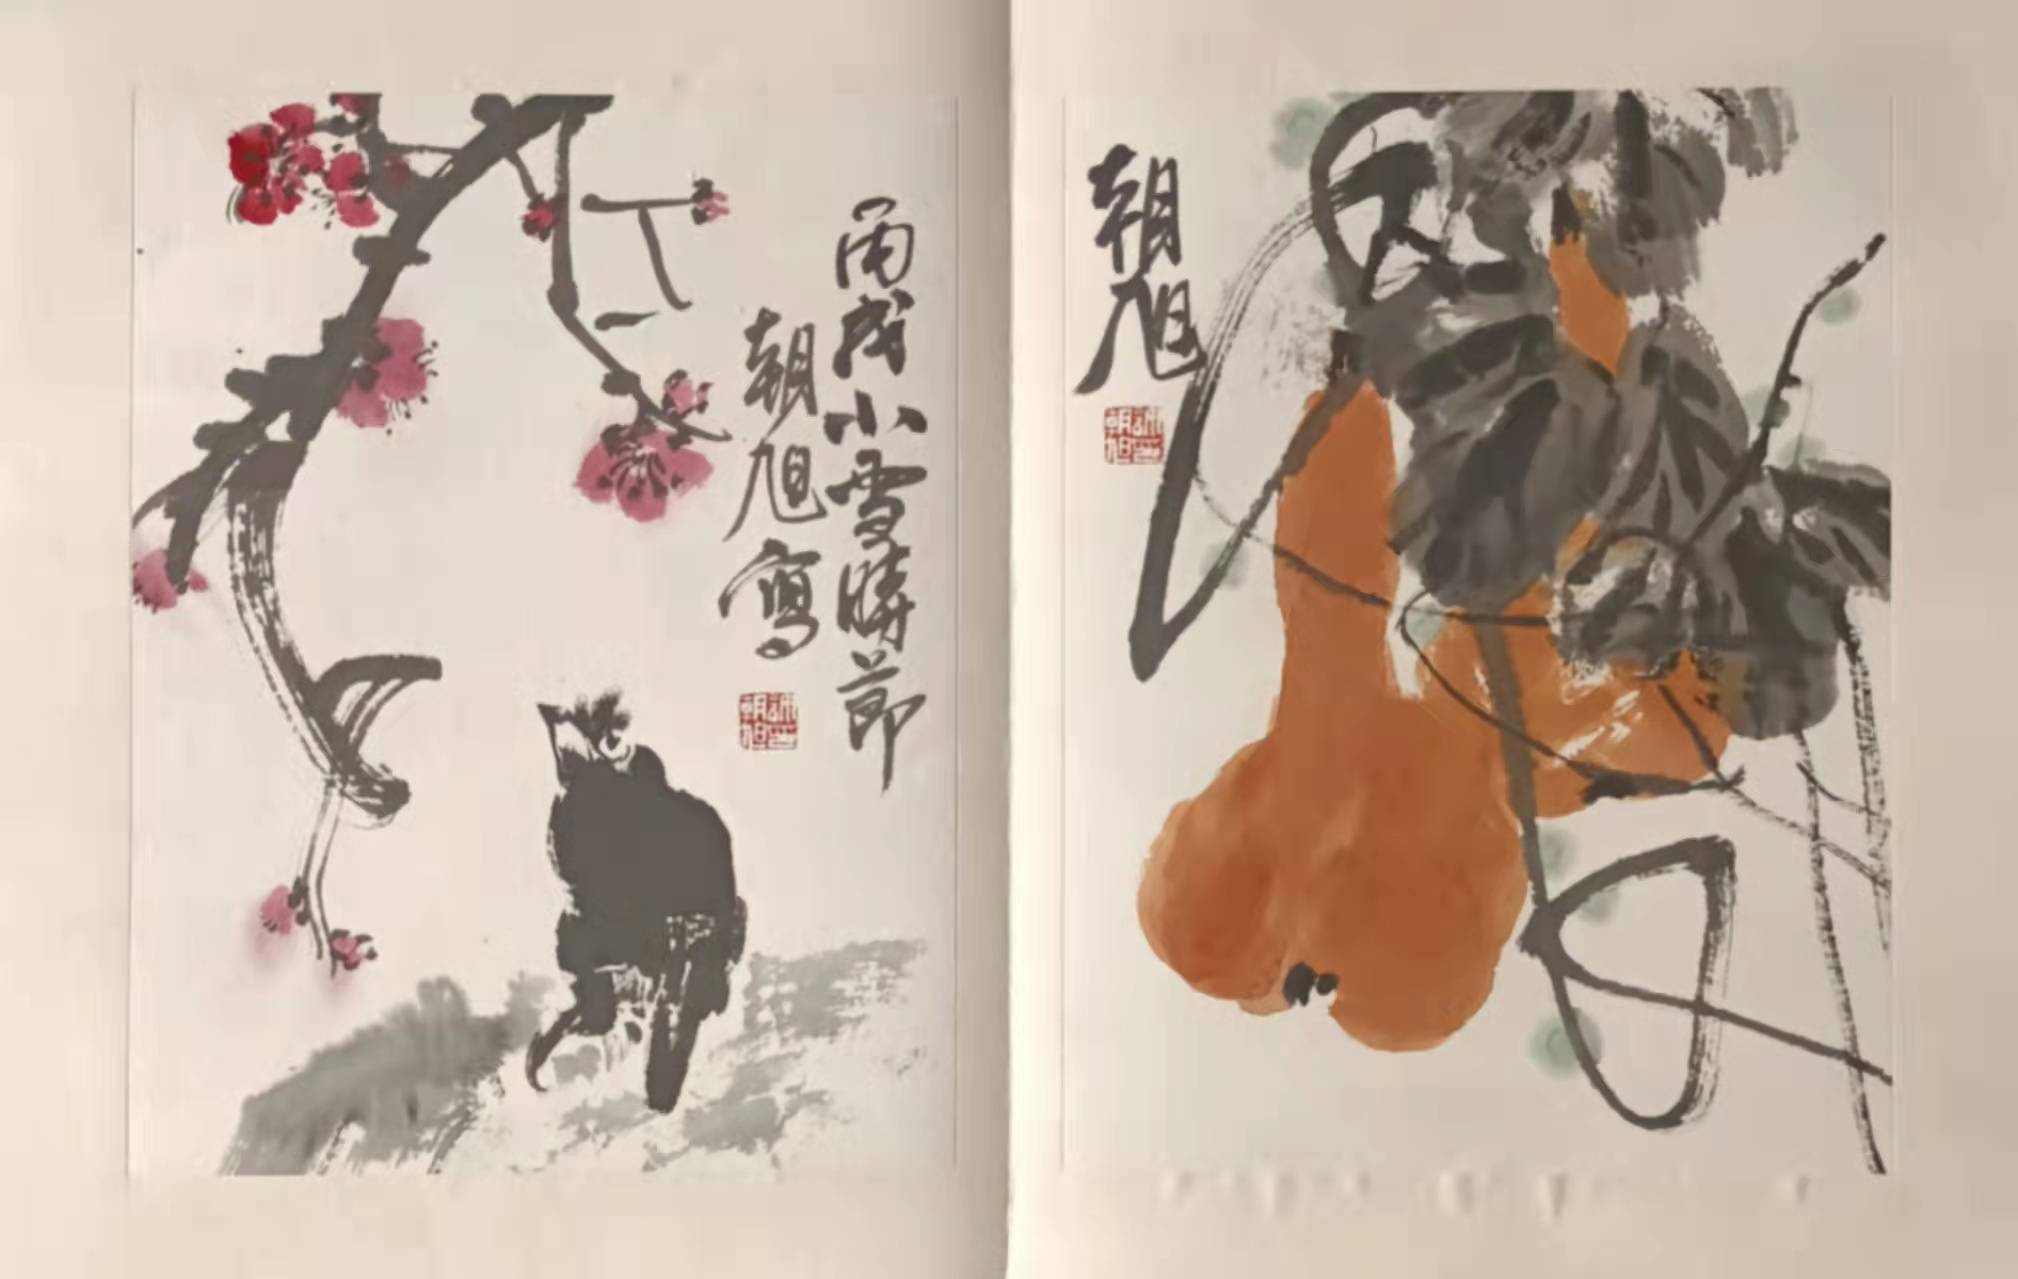 丙戌小雪時節
朝旭寫
朝旭
朝旭
朝旭